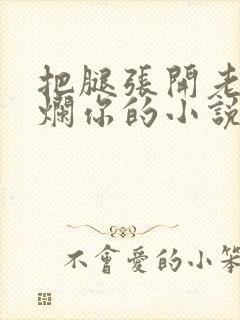 把腿張開老
爛你的小說
不會愛的小笨